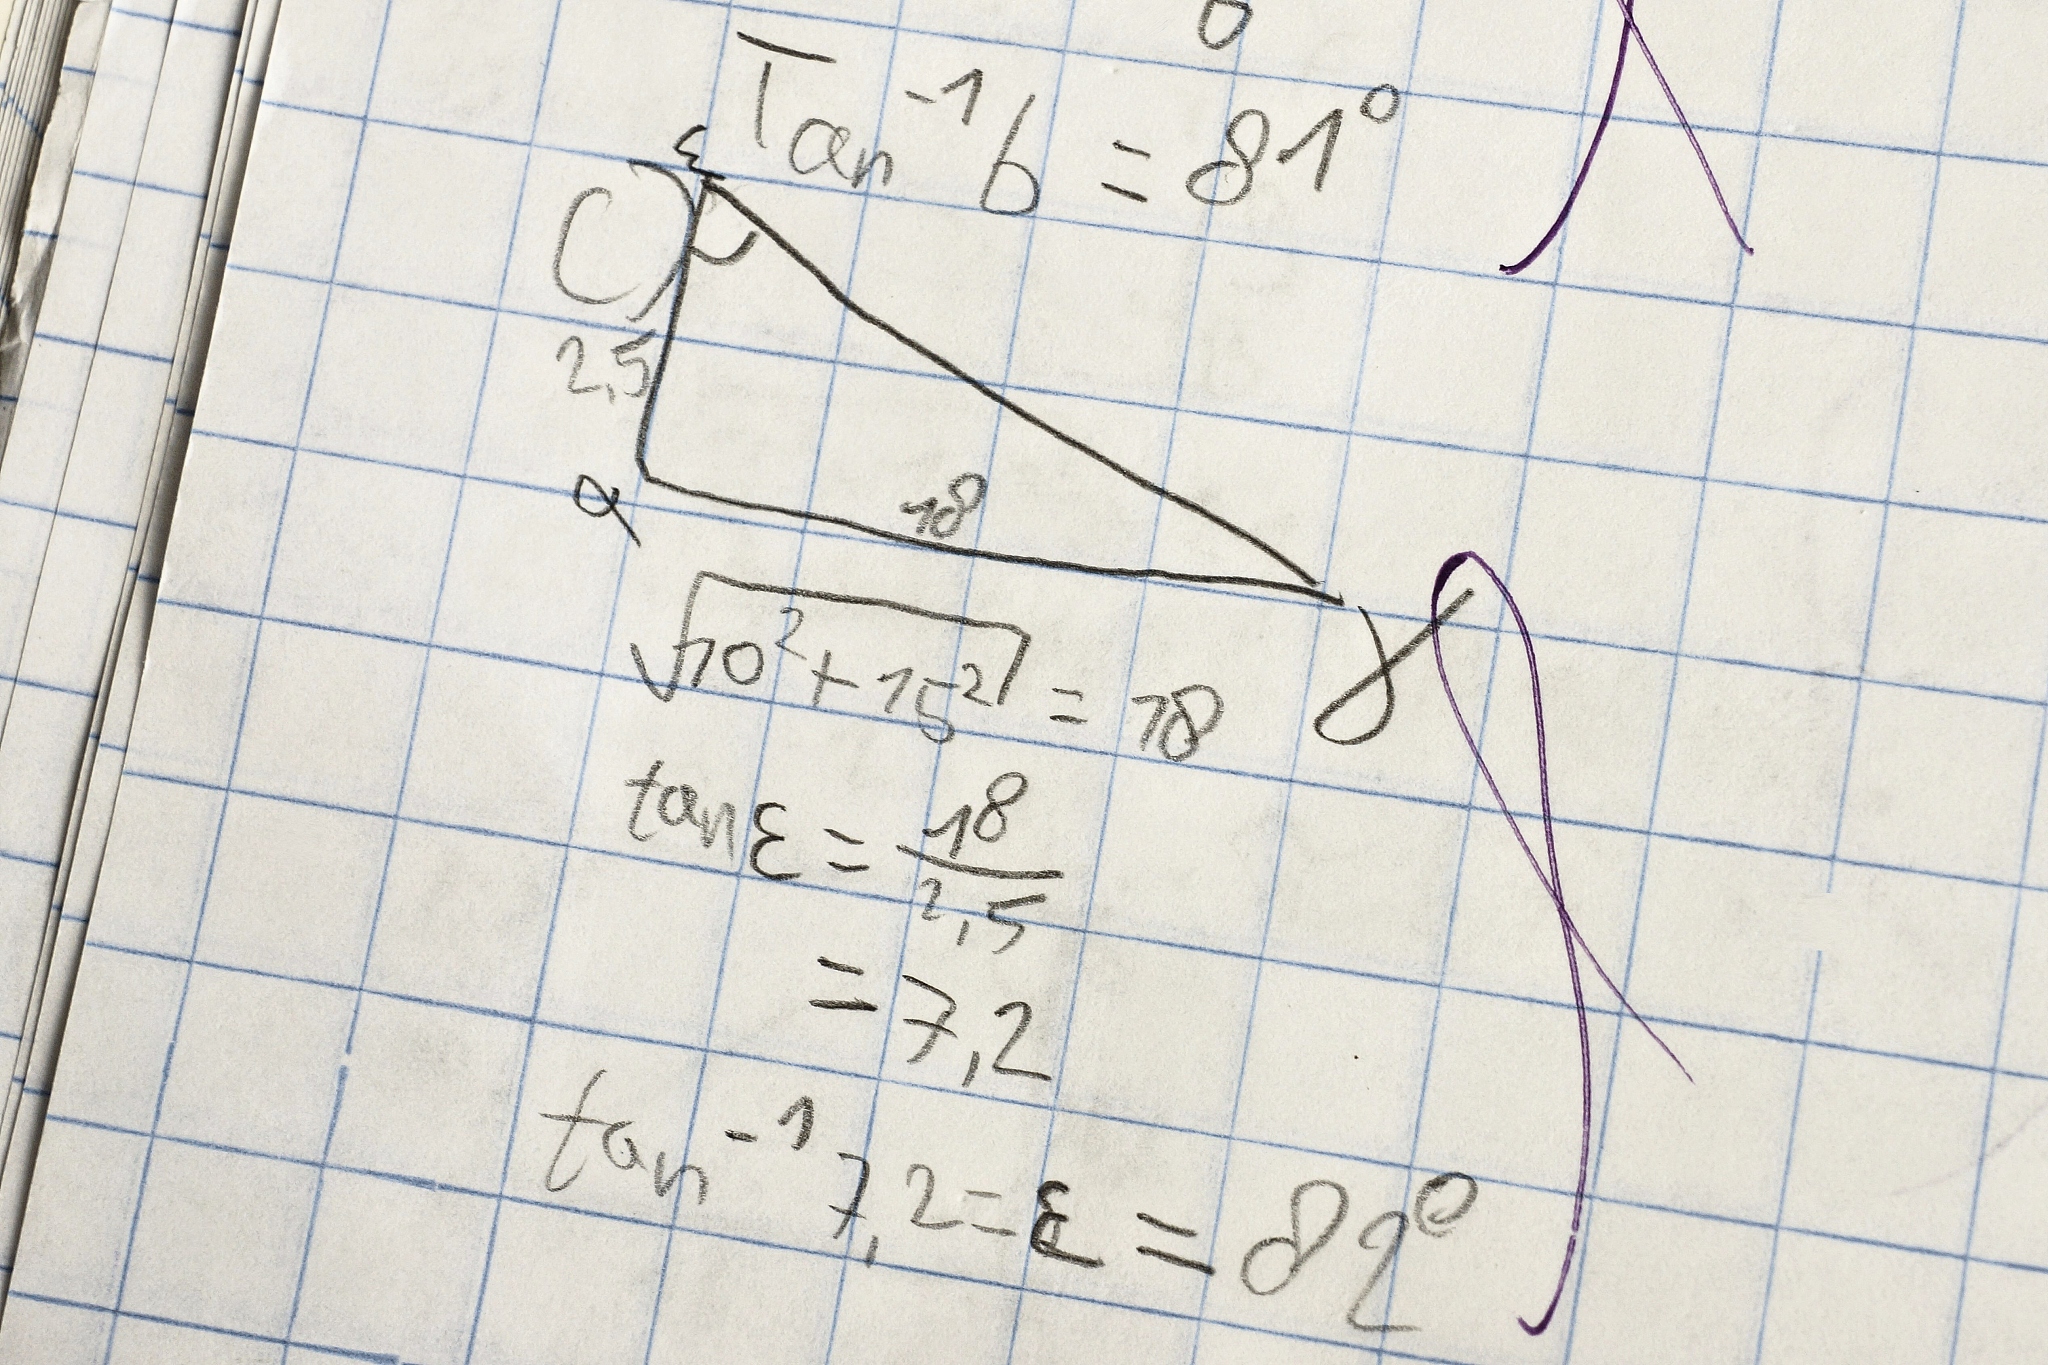 Tan⁻¹6 = 81°
C)
ε
2,5
α
18
γ
√10² + 15² = 18
tan ε = 18/2,5
= 7,2
tan⁻¹ 7,2 = ε = 82°